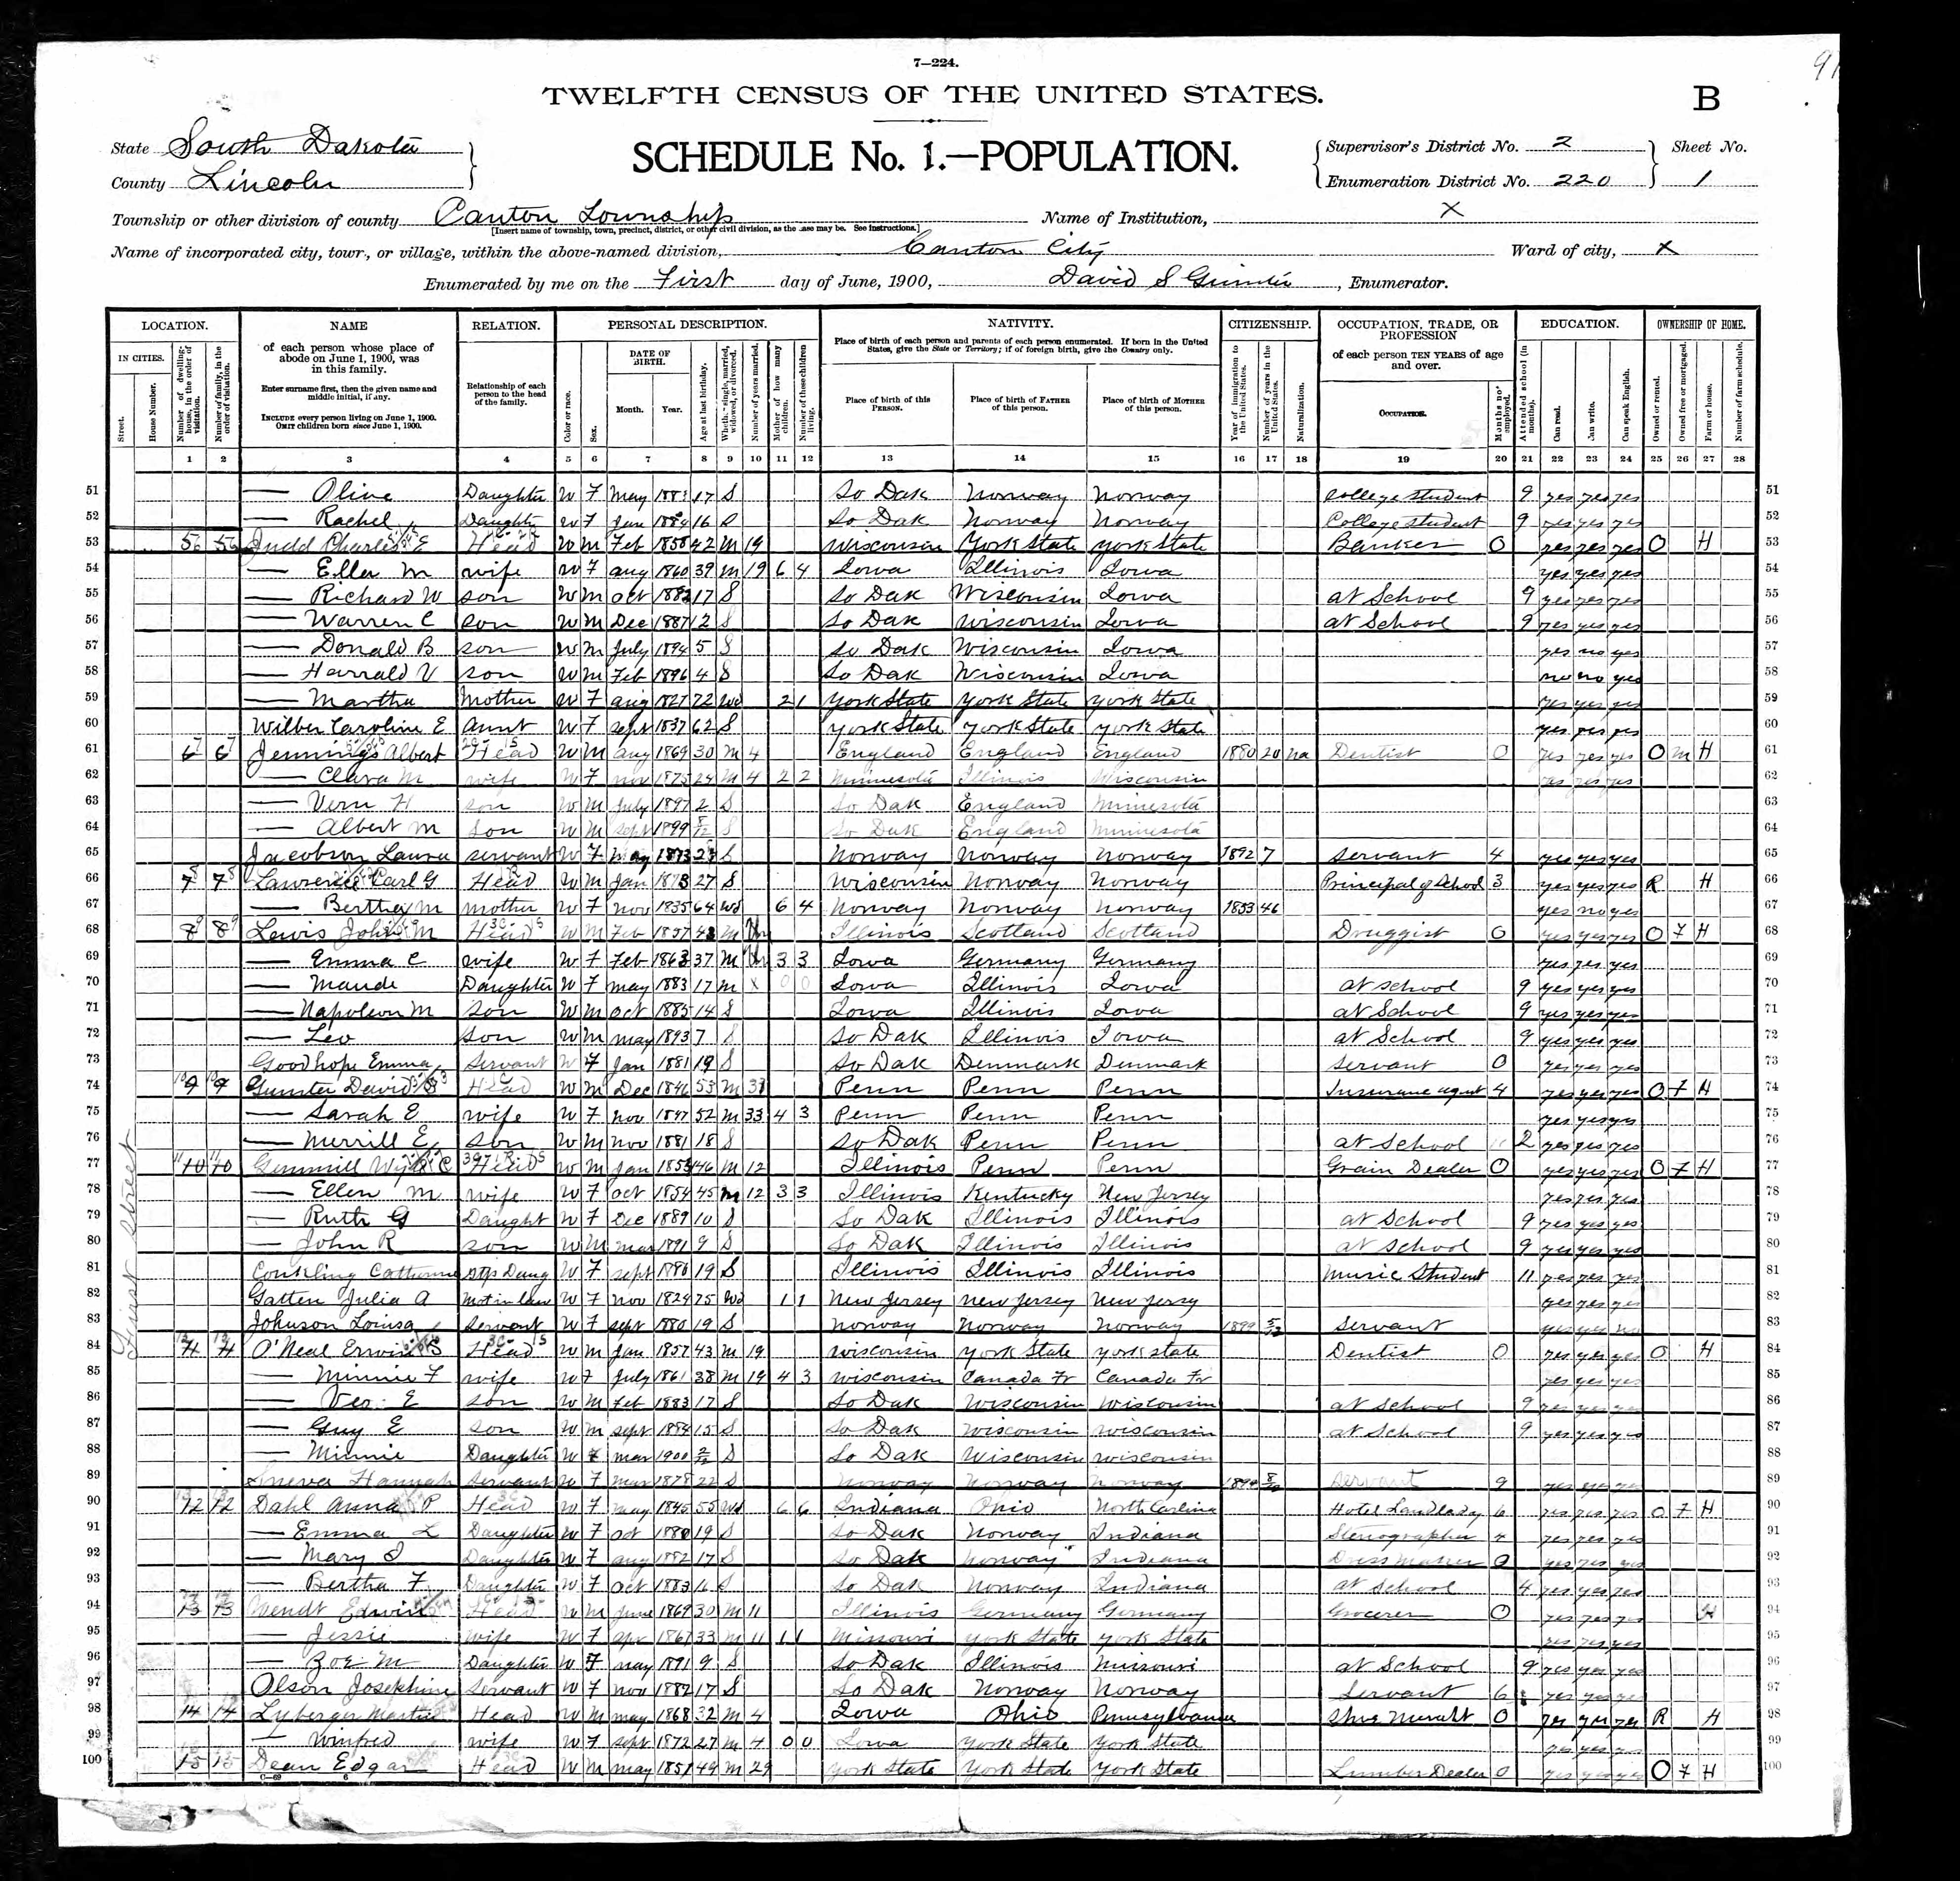 7—224.
91
TWELFTH CENSUS OF THE UNITED STATES.
B
State South Dakota
County Lincoln
SCHEDULE No. 1.—POPULATION.
Supervisor's District No. 2
Enumeration District No. 220
Sheet No.
1
Township or other division of county Canton Township
[Insert name of township, town, precinct, district, or other civil division, as the case may be. See instructions.]
Name of Institution, X
Name of incorporated city, town, or village, within the above-named division, Canton City
Ward of city, X
Enumerated by me on the First day of June, 1900, David S Gunter, Enumerator.
LOCATION. NAME RELATION. PERSONAL DESCRIPTION. NATIVITY. CITIZENSHIP. OCCUPATION, TRADE, OR PROFESSION EDUCATION. OWNERSHIP OF HOME.
IN CITIES. Street. House Number. Number of dwelling-house, in the order of visitation. Number of family, in the order of visitation.
of each person whose place of abode on June 1, 1900, was in this family.
Enter surname first, then the given name and middle initial, if any.
INCLUDE every person living on June 1, 1900.
OMIT children born since June 1, 1900.
Relationship of each person to the head of the family.
Color or race. Sex. DATE OF BIRTH. Month. Year. Age at last birthday. Whether single, married, widowed, or divorced. Number of years married. Mother of how many children. Number of these children living.
Place of birth of each person and parents of each person enumerated. If born in the United States, give the State or Territory; if of foreign birth, give the Country only.
Place of birth of this PERSON. Place of birth of FATHER of this person. Place of birth of MOTHER of this person.
Year of immigration to the United States. Number of years in the United States. Naturalization.
of each person TEN YEARS of age and over.
OCCUPATION. Months not employed.
Attended school (in months). Can read. Can write. Can speak English.
Owned or rented. Owned free or mortgaged. Farm or house. Number of farm schedule.
1 2 3 4 5 6 7 8 9 10 11 12 13 14 15 16 17 18 19 20 21 22 23 24 25 26 27 28
First Street
51 — Olive Daughter W F May 1883 17 S So Dak Norway Norway College Student 9 yes yes yes 51
52 — Rachel Daughter W F Jan 1884 16 S So Dak Norway Norway College Student 9 yes yes yes 52
53 Judd Charles E Head W M Feb 1858 42 M 19 Wisconsin York State York State Banker 0 yes yes yes O H 53
54 — Ella M wife W F Aug 1860 39 M 19 6 4 Iowa Illinois Iowa yes yes yes 54
55 — Richard W son W M Oct 1882 17 S So Dak Wisconsin Iowa at School 9 yes yes yes 55
56 — Warren C son W M Dec 1887 12 S So Dak Wisconsin Iowa at School 9 yes yes yes 56
57 — Donald B son W M July 1894 5 S So Dak Wisconsin Iowa yes no yes 57
58 — Harrald V son W M Feb 1896 4 S So Dak Wisconsin Iowa no no yes 58
59 — Martha Mother W F Aug 1827 72 Wd 2 1 York State York State York State yes yes yes 59
60 Wilber Caroline E Aunt W F Sept 1837 62 S York State York State York State yes yes yes 60
61 Jennings Albert Head W M Aug 1869 30 M 4 England England England 1880 20 Na Dentist 0 yes yes yes O M H 61
62 — Clara M wife W F Nov 1875 24 M 4 2 2 Minnesota Illinois Wisconsin yes yes yes 62
63 — Vern H son W M July 1897 2 S So Dak England Minnesota 63
64 — Albert M Son W M Sept 1899 8/12 S So Dak England Minnesota 64
65 Jacobson Laura servant W F May 1873 S Norway Norway Norway 1892 7 Servant 4 yes yes yes 65
66 7 7 Lawrence Carl G Head W M Jan 1873 27 S Wisconsin Norway Norway Principal of School 3 yes yes yes R H 66
67 — Bertha M mother W F Nov 1835 64 Wd 6 4 Norway Norway Norway 1853 46 yes no yes 67
68 8 8 Lewis John M Head W M Feb 1857 43 M Illinois Scotland Scotland Druggist 0 yes yes yes O F H 68
69 — Emma C wife W F Feb 1863 37 M 3 3 Iowa Germany Germany yes yes yes 69
70 — Maude Daughter W F May 1883 17 M X 0 0 Iowa Illinois Iowa at School 9 yes yes yes 70
71 — Napoleon M son W M Oct 1885 14 S Iowa Illinois Iowa at School 9 yes yes yes 71
72 — Leo son W M May 1893 7 S So Dak Illinois Iowa at School 9 yes yes yes 72
73 Goodhope Emma Servant W F Jan 1881 19 S So Dak Denmark Denmark Servant 0 yes yes yes 73
74 9 9 Gunter David S Head W M Dec 1846 53 M 33 Penn Penn Penn Insurance agent 4 yes yes yes O F H 74
75 — Sarah E wife W F Nov 1847 52 M 33 4 3 Penn Penn Penn yes yes yes 75
76 — Merrill E son W M Nov 1881 18 S So Dak Penn Penn at School 2 yes yes yes 76
77 10 10 Gemmill C Head W M Jan 46 M 12 Illinois Penn Penn Grain Dealer 0 yes yes yes O F H 77
78 — Ellen M wife W F Oct 1854 45 M 12 3 3 Illinois Kentucky New Jersey yes yes yes 78
79 — Ruth G Daught W F Dec 1889 10 S So Dak Illinois Illinois at School 9 yes yes yes 79
80 — John R son W M Mar 1891 9 S So Dak Illinois Illinois at School 9 yes yes yes 80
81 Conkling Catherine Step Daug W F Sept 1880 19 S Illinois Illinois Illinois Music Student 11 yes yes yes 81
82 Gatten Julia A Mot in law W F Nov 1824 75 Wd 1 1 New Jersey New Jersey New Jersey yes yes yes 82
83 Johnson Louisa Servant W F Sept 1880 19 S Norway Norway Norway 1899 5/12 Servant yes yes no 83
84 O'Neal Erwin B Head W M Jan 1857 43 M 19 Wisconsin York State York State Dentist 0 yes yes yes O H 84
85 — Minnie F wife W F July 1861 38 M 19 4 3 Wisconsin Canada Fr Canada Fr yes yes yes 85
86 — E son W M Feb 1883 17 S So Dak Wisconsin Wisconsin at School 9 yes yes yes 86
87 — Guy E son W M Sept 1884 15 S So Dak Wisconsin Wisconsin at School 9 yes yes yes 87
88 — Minnie Daughter W F Mar 1900 2/12 S So Dak Wisconsin Wisconsin 88
89 Hannah Servant W F Mar 1878 22 S Norway Norway Norway Servant 9 yes yes yes 89
90 12 12 Dahl Anna P Head W F May 1845 55 Wd 6 6 Indiana Ohio North Carlina Hotel Landlady 6 yes yes yes O F H 90
91 — Emma L Daughter W F Oct 1880 19 S So Dak Norway Indiana Stenographer 4 yes yes yes 91
92 — Mary I Daughter W F Aug 1882 17 S So Dak Norway Indiana Dress Maker 0 yes yes yes 92
93 — Bertha F Daughter W F Oct 1883 16 S So Dak Norway Indiana at School 4 yes yes yes 93
94 13 13 Wendt Edwin Head W M June 1869 30 M 11 Illinois Germany Germany Grocer 0 yes yes yes H 94
95 — Jessie wife W F Apr 1867 33 M 11 1 1 Missouri York State York State yes yes yes 95
96 — Zoe M Daughter W F May 1891 9 S So Dak Illinois Missouri at School 9 yes yes yes 96
97 Olson Josephine Servant W F Nov 1882 17 S So Dak Norway Norway Servant 6 yes yes yes 97
98 14 14 Lyberger Martin Head W M May 1868 32 M 4 Iowa Ohio Pennsylvania 0 yes yes yes R H 98
99 — Winifred wife W F Sept 1872 27 M 4 0 0 Iowa York State York State yes yes yes 99
100 15 15 Dean Edgar Head W M May 1851 49 M 29 York State York State York State Lumber Dealer 0 yes yes yes O F H 100